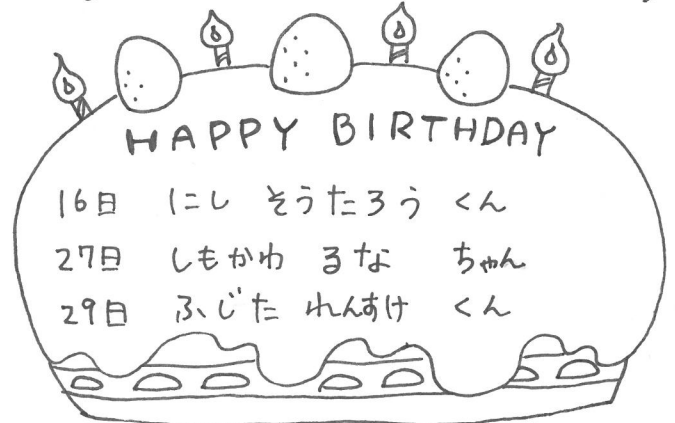 HAPPY BIRTHDAY
16日 にし そうたろう くん
27日 しもかわ るな ちゃん
29日 ふじた れんすけ くん